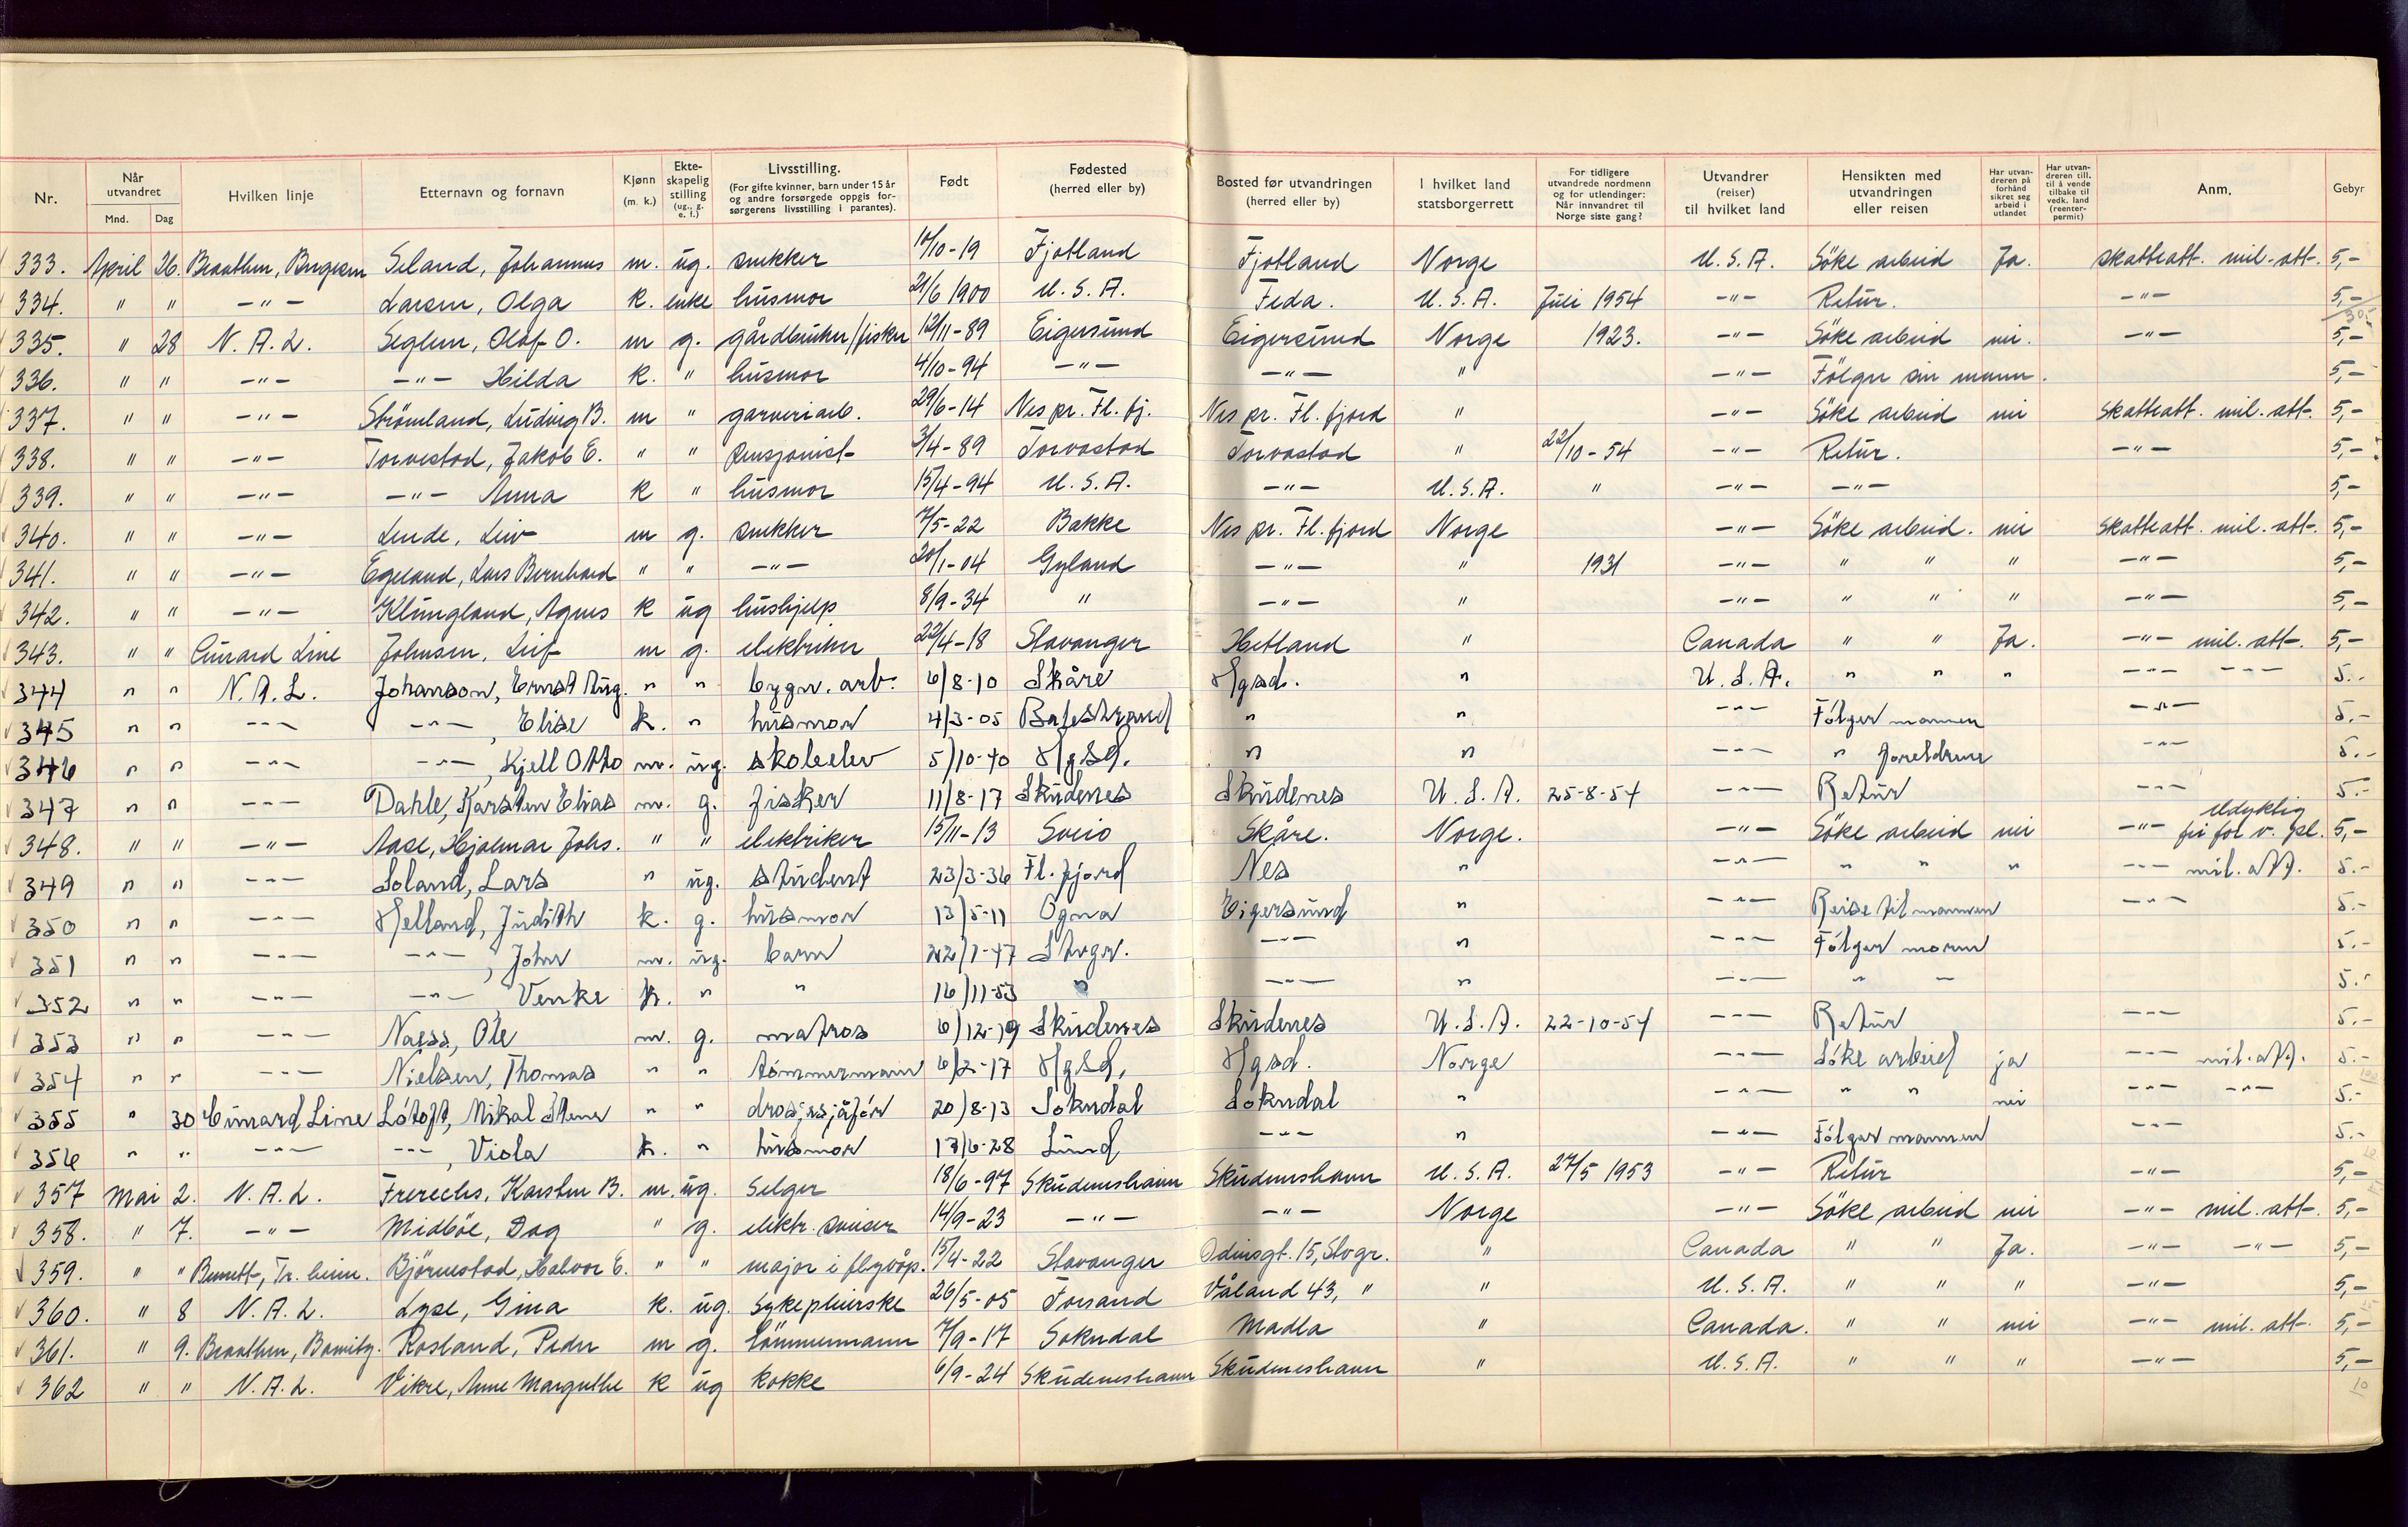 Nr. | Når utvandret Mnd. Dag | Hvilken linje | Etternavn og fornavn | Kjønn (m. k.) | Ekteskapelig stilling (ug., g. e. f.) | Livsstilling. (For gifte kvinner, barn under 15 år og andre forsørgede oppgis forsørgerens livsstilling i parantes). | Født | Fødested (herred eller by) | Bosted før utvandringen (herred eller by) | I hvilket land statsborgerrett | For tidligere utvandrede nordmenn og for utlendinger: Når innvandret til Norge siste gang? | Utvandrer (reiser) til hvilket land | Hensikten med utvandringen eller reisen | Har utvandreren på forhånd sikret seg arbeid i utlandet | Har utvandreren till. til å vende tilbake til vedk. land (reenterpermit) | Anm. | Gebyr
333. April 26. Braathen, Bergesen Seland, Johannes m. ug. snekker 12/10-19 Fjotland Fjotland Norge U.S.A. Söke arbeid Ja. skatteatt. mil.-att. 5,-
334. " " -"- Larsen, Olga k. enke husmor 21/6 1900 U.S.A. Feda. U.S.A. Juli 1954 -"- Retur. -"- 5,-
335. " 28 N.A.L. Seglem, Olaf O. m g. gårdbruker/fisker 12/11-89 Eigersund Eigersund Norge 1923. -"- Söke arbeid nei. -"- 5,-
336. " " -"- -"- Hilda k. " husmor 4/10-94 -"- -"- " -"- Fölger sin mann. 5,-
337. " " -"- Strömland, Ludvig B. m " garveriarb. 29/6-14 Nes pr. Fl. fj. Nes pr. Fl. fjord " -"- Söke arbeid nei skatteatt. mil. att. 5,-
338. " " -"- Torvestad, Jakob E. " " pensjonist 3/4-89 Torvastad Torvastad " 22/10-54 -"- Retur. -"- 5,-
339. " " -"- -"- Anna k " husmor 15/4-94 U.S.A. -"- U.S.A. " -"- -"- 5,-
340. " " -"- Lende, Leiv m g. snekker 7/5-22 Bakke Nes pr. Fl. fjord Norge -"- Söke arbeid. nei skatteatt. mil. att. 5,-
341. " " -"- Egeland, Lars Bernhard " " -"- 20/1-04 Gyland -"- " 1931 -"- " " " -"- 5,-
342. " " -"- Klungland, Agnes k ug hushjelp 8/9-34 " -"- " -"- " " " -"- 5,-
343. " " Cunard Line Johnsen, Leif m g. elektriker 22/4-18 Stavanger Hetland " Canada " " Ja. -"- mil. att. 5,-
344 " " N.A.L. Johanson, Ernst Aug. " " bygn. arb. 6/8-10 Skåre Hgsd. " U.S.A. " " " -"- -"- 5.-
345 " " -"- -"-, Elise k. " husmor 4/3-05 Balestrand " " -"- Fölger mannen -"- 5.-
346 " " -"- -"-, Kjell Otto m. ug. skoleelev 5/10-40 Hgsd. " " -"- " foreldrene -"- 5.-
347 " " -"- Dahle, Karsten Elias m. g. fisker 11/8-17 Skudenes Skudenes U.S.A. 25-8-54 -"- Retur -"- 5.-
348. " " -"- Aase, Hjalmar Johs. " " elektriker 15/11-13 Sveio Skåre. Norge. -"- Söke arbeid nei -"- Udyktig fri for v. pl. 5,-
349 " " -"- Soland, Lars " ug. student 23/3-36 Fl. fjord Nes " -"- " " " -"- mil. att. 5.-
350 " " -"- Helland, Judith k. g. husmor 13/5-11 Ogna Eigersund " -"- Reise til mannen -"- 5.-
351 " " -"- -"-, John m. ug. barn 22/1-47 Stvgr. -"- " -"- Fölger moren 5.-
352 " " -"- -"- Venke k. " " 16/11-53 " -"- " -"- " - 5.-
353 " " -"- Naess, Ole m. g. matros 6/12-19 Skudenes Skudenes U.S.A. 22-10-54 -"- Retur -"- 5.-
354 " " -"- Nielsen, Thomas " " tömmermann 6/2-17 Hgsd. Hgsd. Norge -"- Söke arbeid ja -"- mil. att. 5.-
355 " 30 Cunard Line Lötoft, Mikal Steen " " drosjesjåfør 20/8-13 Sokndal Sokndal " -"- " " nei -"- -"- 5.-
356 " " -"- -"-, Viola k. " husmor 17/6-28 Lund -"- " -"- Fölger mannen -"- 5.-
357 Mai 2. N.A.L. Frerechs, Karsten B. m. ug. selger 18/6-97 Skudeneshavn Skudeneshavn U.S.A. 27/5 1953 -"- Retur -"- 5,-
358. " 7. -"- Midböe, Dag " g. elektr. sveiser 14/9-23 -"- -"- Norge -"- Söke arbeid nei -"- mil. att. 5,-
359. " " Bennett, Tr. heim. Björnestad, Halvor E. " " major i flyvåp. 15/4-22 Stavanger Odinsgt. 15, Stvgr. " Canada " " Ja. -"- -"- 5,-
360. " 8 N.A.L. Lyse, Gina k. ug. sykepleierske 26/5-05 Forsand Våland 43, " " U.S.A. " " " -"- 5,-
361. " 9. Braathen, Rosland, Peder m g. tömmermann 7/9-17 Sokndal Madla " Canada. " " nei -"- mil. att. 5,-
362 " " N.A.L. Vikre, Anne Margrethe k ug kokke 6/9-24 Skudeneshavn Skudeneshavn " U.S.A. " " " -"- 5,-
10